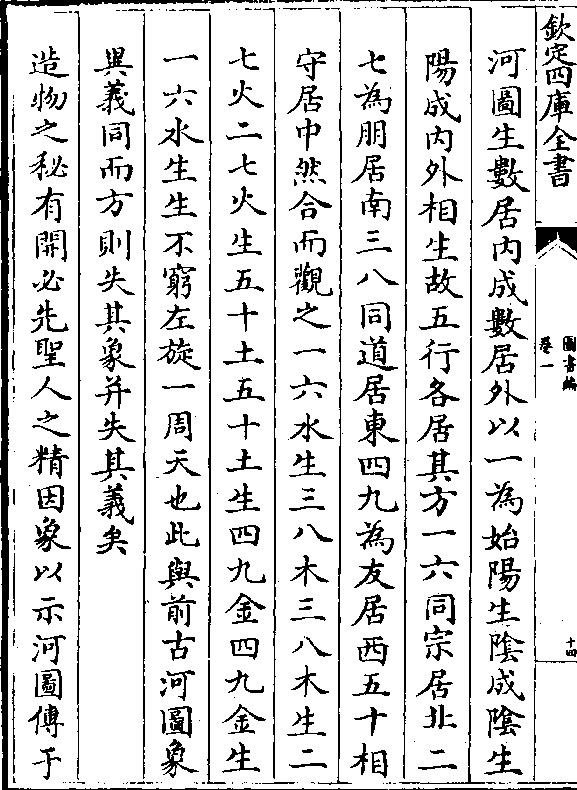 欽定四庫全書
圖書編
卷一
十四
河圖生數居內成數居外以一為始陽生陰成陰生
陽成內外相生故五行各居其方一六同宗居北二
七為朋居南三八同道居東四九為友居西五十相
守居中然合而觀之一六水生三八木三八木生二
七火二七火生五十土五十土生四九金四九金生
一六水生生不窮左旋一周天也此與前古河圖象
異義同而方則失其象并失其義矣
造物之秘有開必先聖人之精因象以示河圖傳于